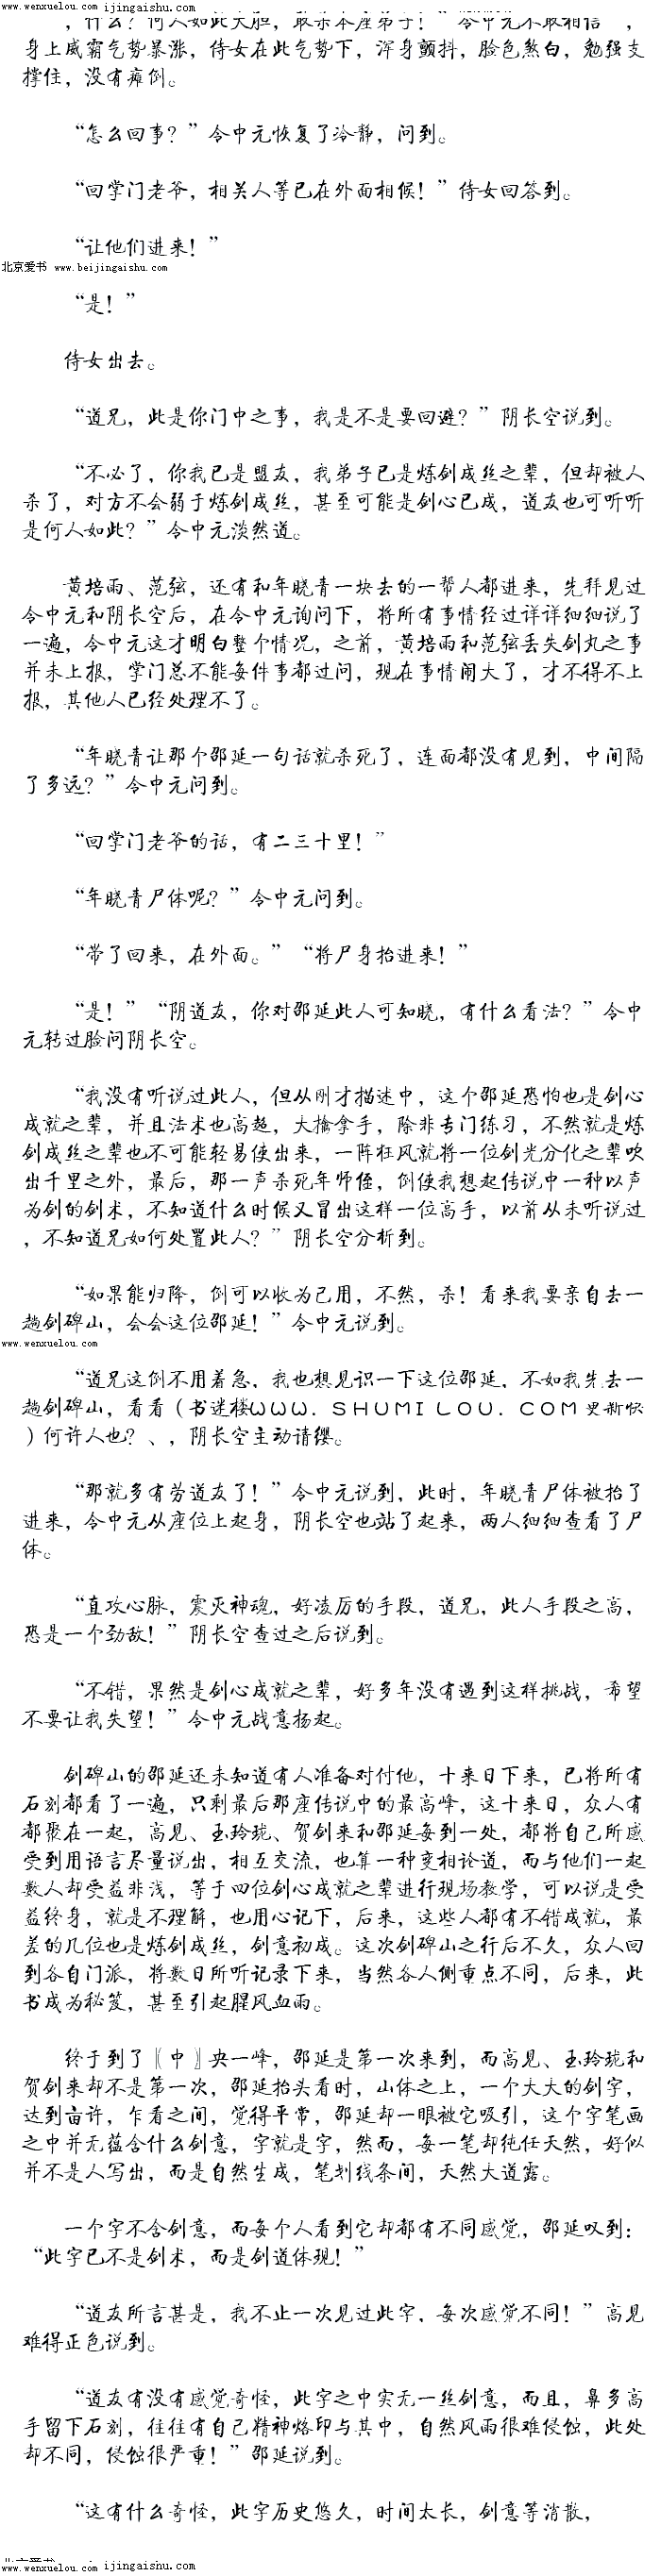 www.wenxuelou.com ijingaishu.com
，什么？何人如此大胆，敢杀本座弟子！”令中元不敢相信，
身上威霸气势暴涨，侍女在此气势下，浑身颤抖，脸色煞白，勉强支
撑住，没有瘫倒。
“怎么回事？”令中元恢复了冷静，问到。
“回掌门老爷，相关人等已在外面相候！”侍女回答到。
“让他们进来！”
北京爱书 www.beijingaishu.com
“是！”
侍女出去。
“道兄，此是你门中之事，我是不是要回避？”阴长空说到。
“不必了，你我已是盟友，我弟子已是炼剑成丝之辈，但却被人
杀了，对方不会弱于炼剑成丝，甚至可能是剑心已成，道友也可听听
是何人如此？”令中元淡然道。
黄培雨、范弦，还有和年晓青一块去的一帮人都进来，先拜见过
令中元和阴长空后，在令中元询问下，将所有事情经过详详细细说了
一遍，令中元这才明白整个情况，之前，黄培雨和范弦丢失剑丸之事
并未上报，掌门总不能每件事都过问，现在事情闹大了，才不得不上
报，其他人已经处理不了。
“年晓青让那个邵延一句话就杀死了，连面都没有见到，中间隔
了多远？”令中元问到。
“回掌门老爷的话，有二三十里！”
“年晓青尸体呢？”令中元问到。
“带了回来，在外面。”“将尸身抬进来！”
“是！”“阴道友，你对邵延此人可知晓，有什么看法？”令中
元转过脸问阴长空。
“我没有听说过此人，但从刚才描述中，这个邵延恐怕也是剑心
成就之辈，并且法术也高超，大擒拿手，除非专门练习，不然就是炼
剑成丝之辈也不可能轻易使出来，一阵狂风就将一位剑光分化之辈吹
出千里之外，最后，那一声杀死年师侄，倒使我想起传说中一种以声
为剑的剑术，不知道什么时候又冒出这样一位高手，以前从未听说过
，不知道兄如何处置此人？”阴长空分析到。
“如果能归降，倒可以收为己用，不然，杀！看来我要亲自去一
趟剑碑山，会会这位邵延！”令中元说到。
www.wenxuelou.com
“道兄这倒不用着急，我也想见识一下这位邵延，不如我先去一
趟剑碑山，看看（书迷楼ＷＷＷ．ＳＨＵＭＩＬＯＵ．ＣＯＭ更新快
）何许人也？、，阴长空主动请缨。
“那就多有劳道友了！”令中元说到，此时，年晓青尸体被抬了
进来，令中元从座位上起身，阴长空也站了起来，两人细细查看了尸
体。
“直攻心脉，震灭神魂，好凌厉的手段，道兄，此人手段之高，
恐是一个劲敌！”阴长空查过之后说到。
“不错，果然是剑心成就之辈，好多年没有遇到这样挑战，希望
不要让我失望！”令中元战意扬起。
剑碑山的邵延还未知道有人准备对付他，十来日下来，已将所有
石刻都看了一遍，只剩最后那座传说中的最高峰，这十来日，众人有
都聚在一起，高见、玉玲珑、贺剑来和邵延每到一处，都将自己所感
受到用语言尽量说出，相互交流，也算一种变相论道，而与他们一起
数人却受益非浅，等于四位剑心成就之辈进行现场教学，可以说是受
益终身，就是不理解，也用心记下，后来，这些人都有不错成就，最
差的几位也是炼剑成丝，剑意初成。这次剑碑山之行后不久，众人回
到各自门派，将数日所听记录下来，当然各人侧重点不同，后来，此
书成为秘笈，甚至引起腥风血雨。
终于到了〖中〗央一峰，邵延是第一次来到，而高见、玉玲珑和
贺剑来却不是第一次，邵延抬头看时，山体之上，一个大大的剑字，
达到亩许，乍看之间，觉得平常，邵延却一眼被它吸引，这个字笔画
之中并无蕴含什么剑意，字就是字，然而，每一笔却纯任天然，好似
并不是人写出，而是自然生成，笔划线条间，天然大道露。
一个字不含剑意，而每个人看到它却都有不同感觉，邵延叹到：
“此字已不是剑术，而是剑道体现！”
“道友所言甚是，我不止一次见过此字，每次感觉不同！”高见
难得正色说到。
“道友有没有感觉奇怪，此字之中实无一丝剑意，而且，鼻多高
手留下石刻，往往有自己精神烙印与其中，自然风雨很难侵蚀，此处
却不同，侵蚀很严重！”邵延说到。
“这有什么奇怪，此字历史悠久，时间太长，剑意等消散，
www.wenxuelou.com ijingaishu.com